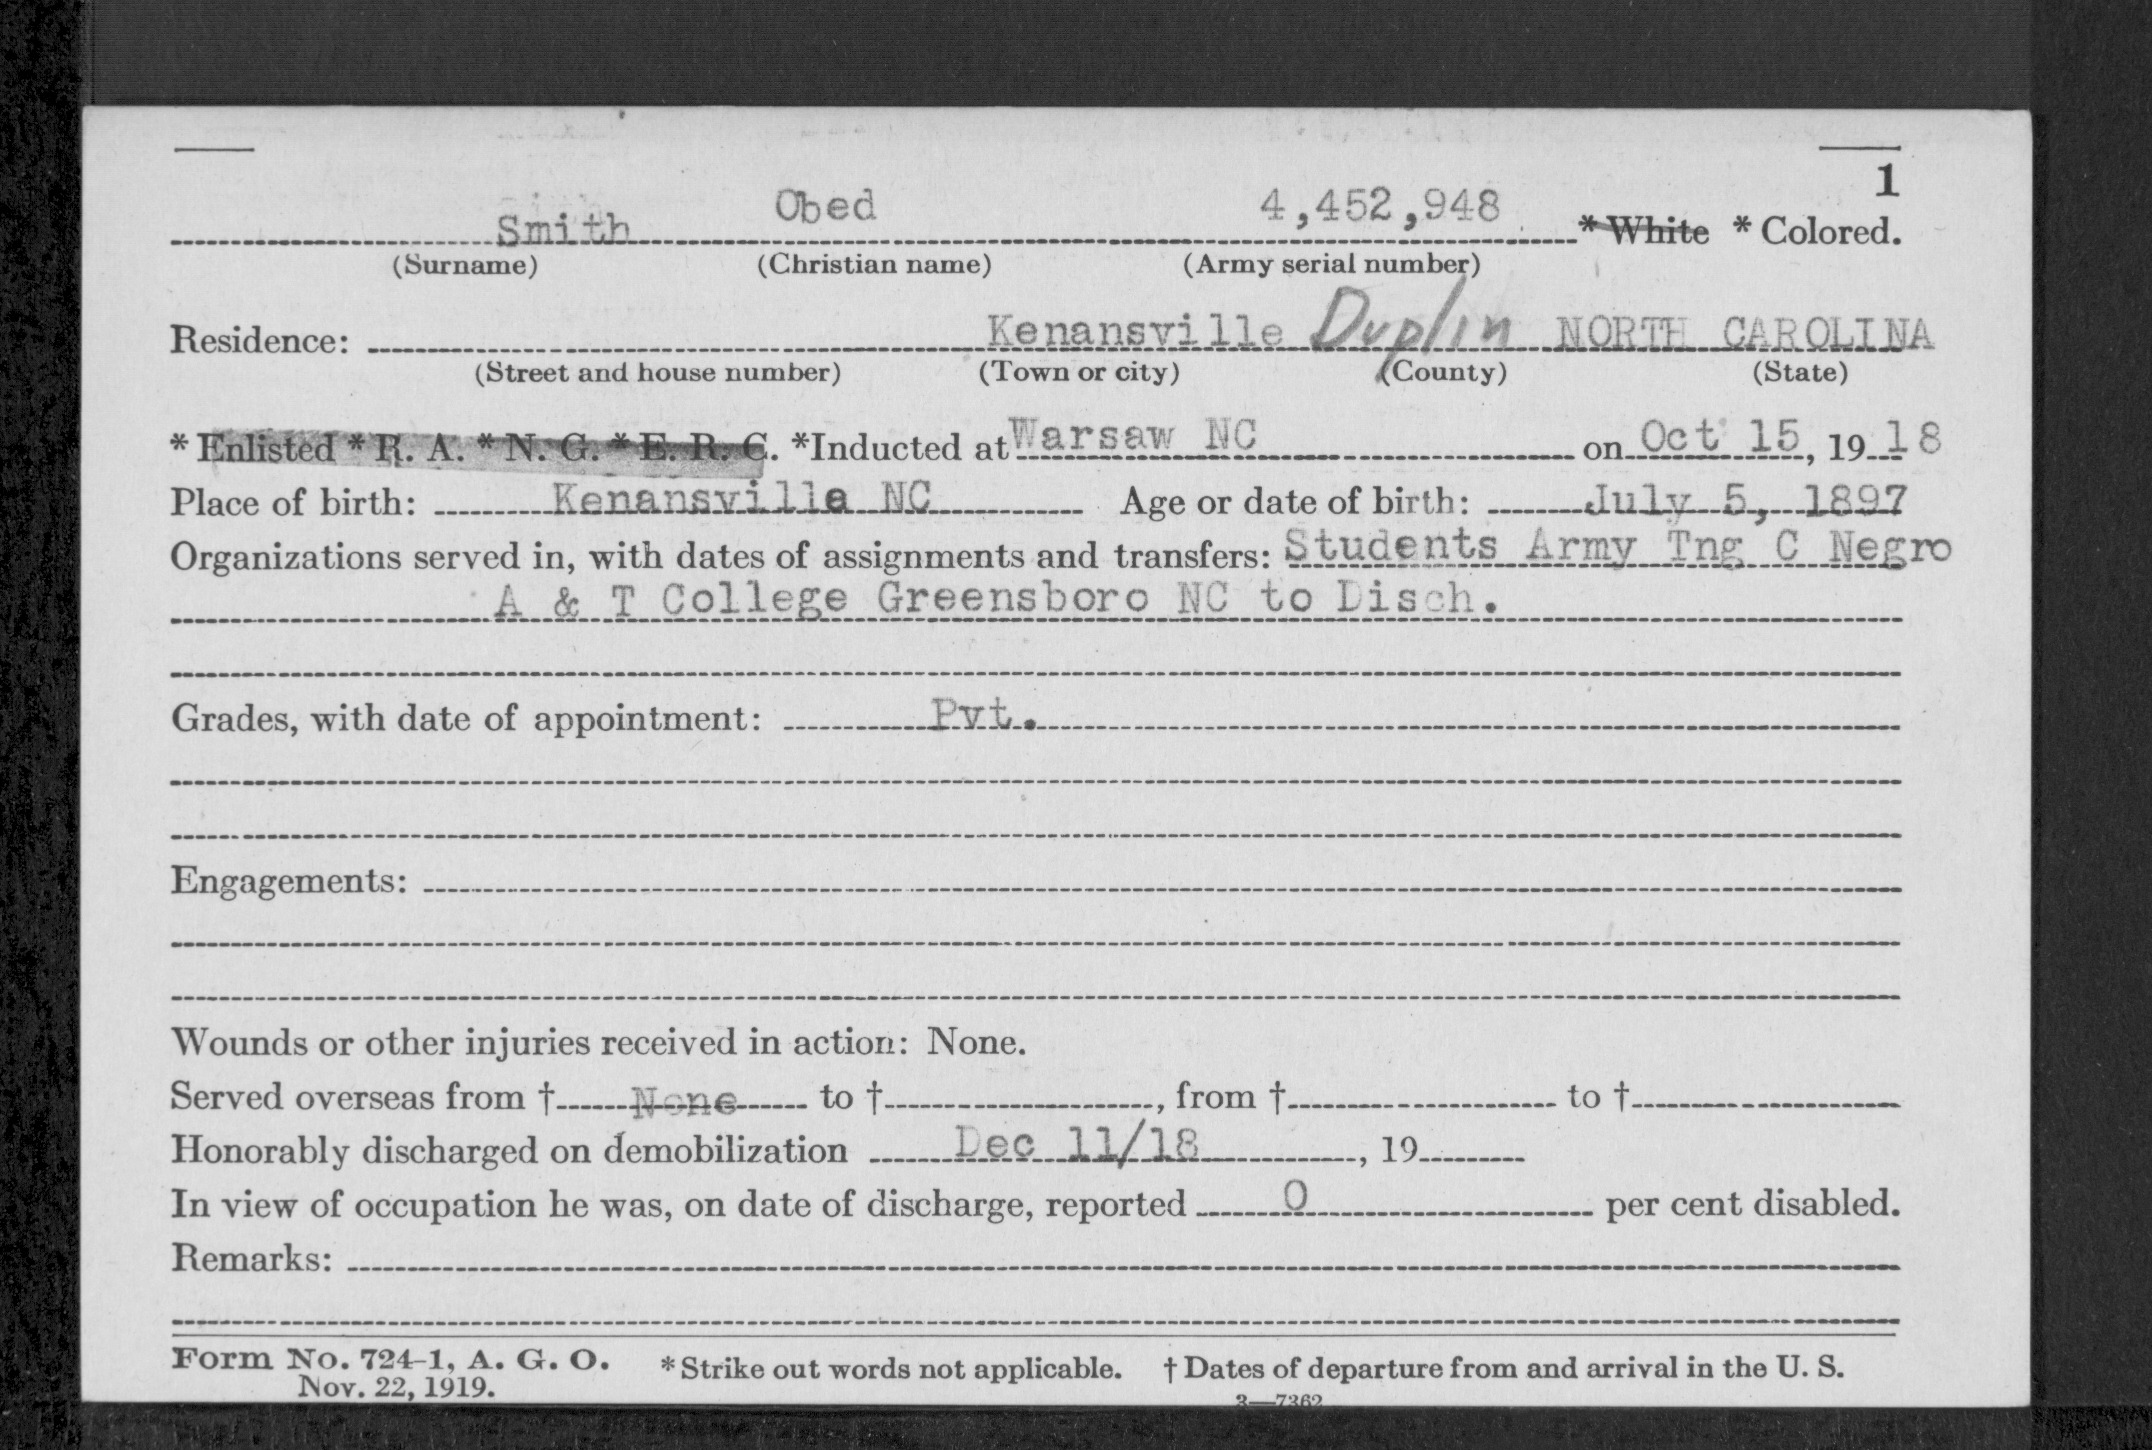 1
Smith Obed 4,452,948 * White * Colored.
(Surname) (Christian name) (Army serial number)
Residence: Kenansville Duplin NORTH CAROLINA
(Street and house number) (Town or city) (County) (State)
* Enlisted * R. A. * N. G. * E. R. C. *Inducted at Warsaw NC on Oct 15, 1918
Place of birth: Kenansville NC Age or date of birth: July 5, 1897
Organizations served in, with dates of assignments and transfers: Students Army Tng C Negro
A & T College Greensboro NC to Disch.
Grades, with date of appointment: Pvt.
Engagements:
Wounds or other injuries received in action: None.
Served overseas from † None to †, from † to †
Honorably discharged on demobilization Dec 11/18, 19
In view of occupation he was, on date of discharge, reported 0 per cent disabled.
Remarks:
Form No. 724-1, A. G. O. * Strike out words not applicable. † Dates of departure from and arrival in the U. S.
Nov. 22, 1919.
3—7362